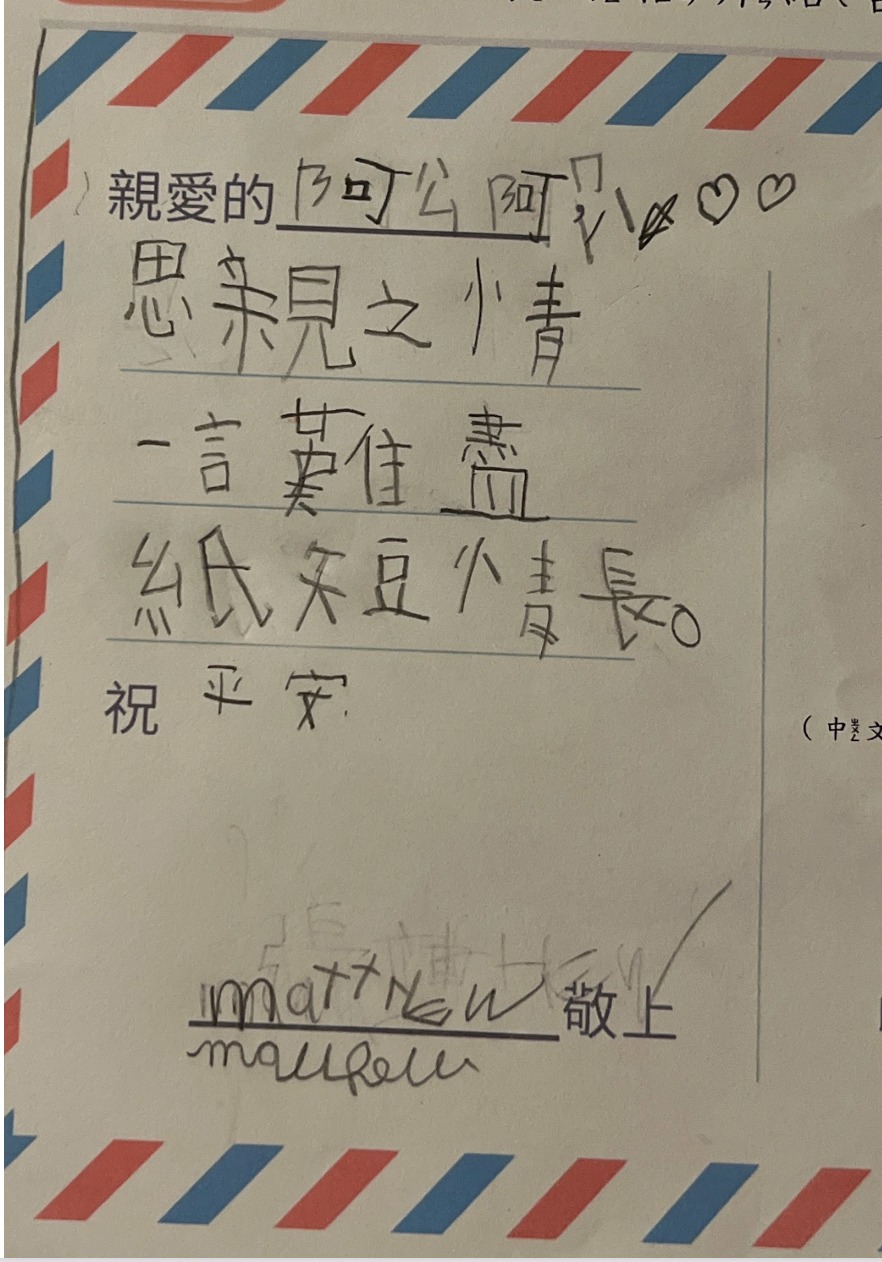 親愛的阿公阿
思親之情
一言難盡
紙短情長。
祝 平安
matthew 敬上
matthew
(中文